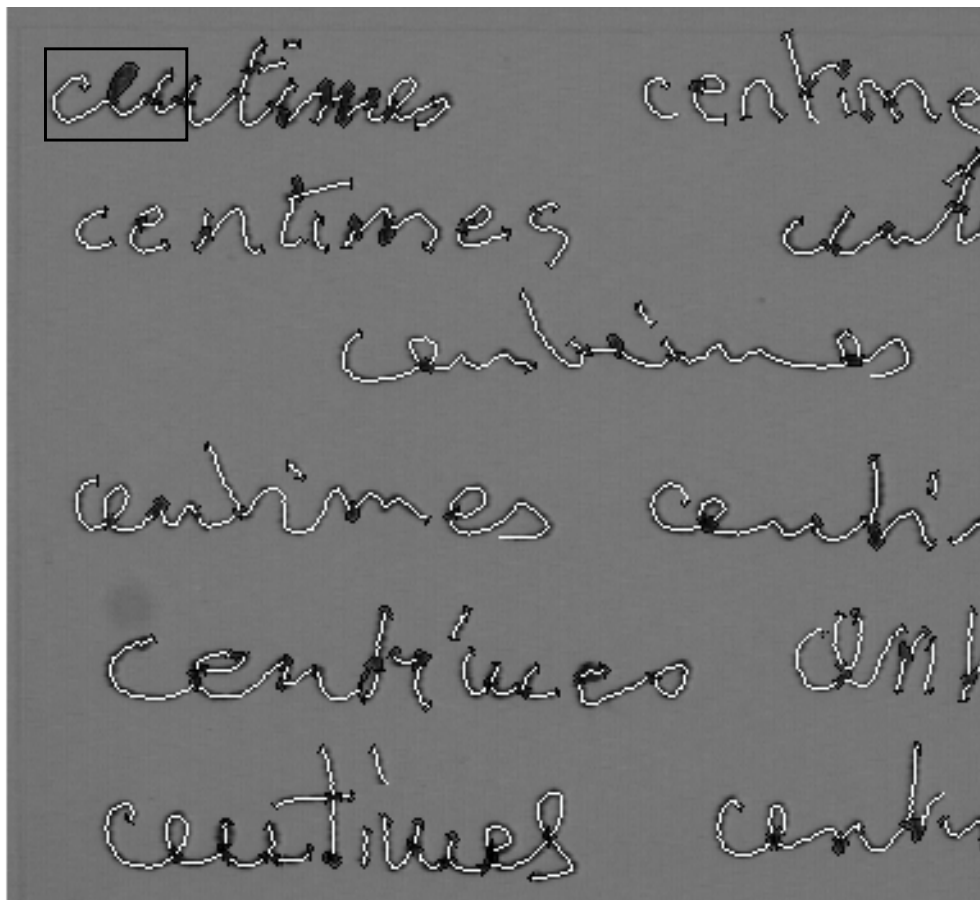 centimes centime
centimes cent
centimes
centimes centi
centimes cent
centimes cent